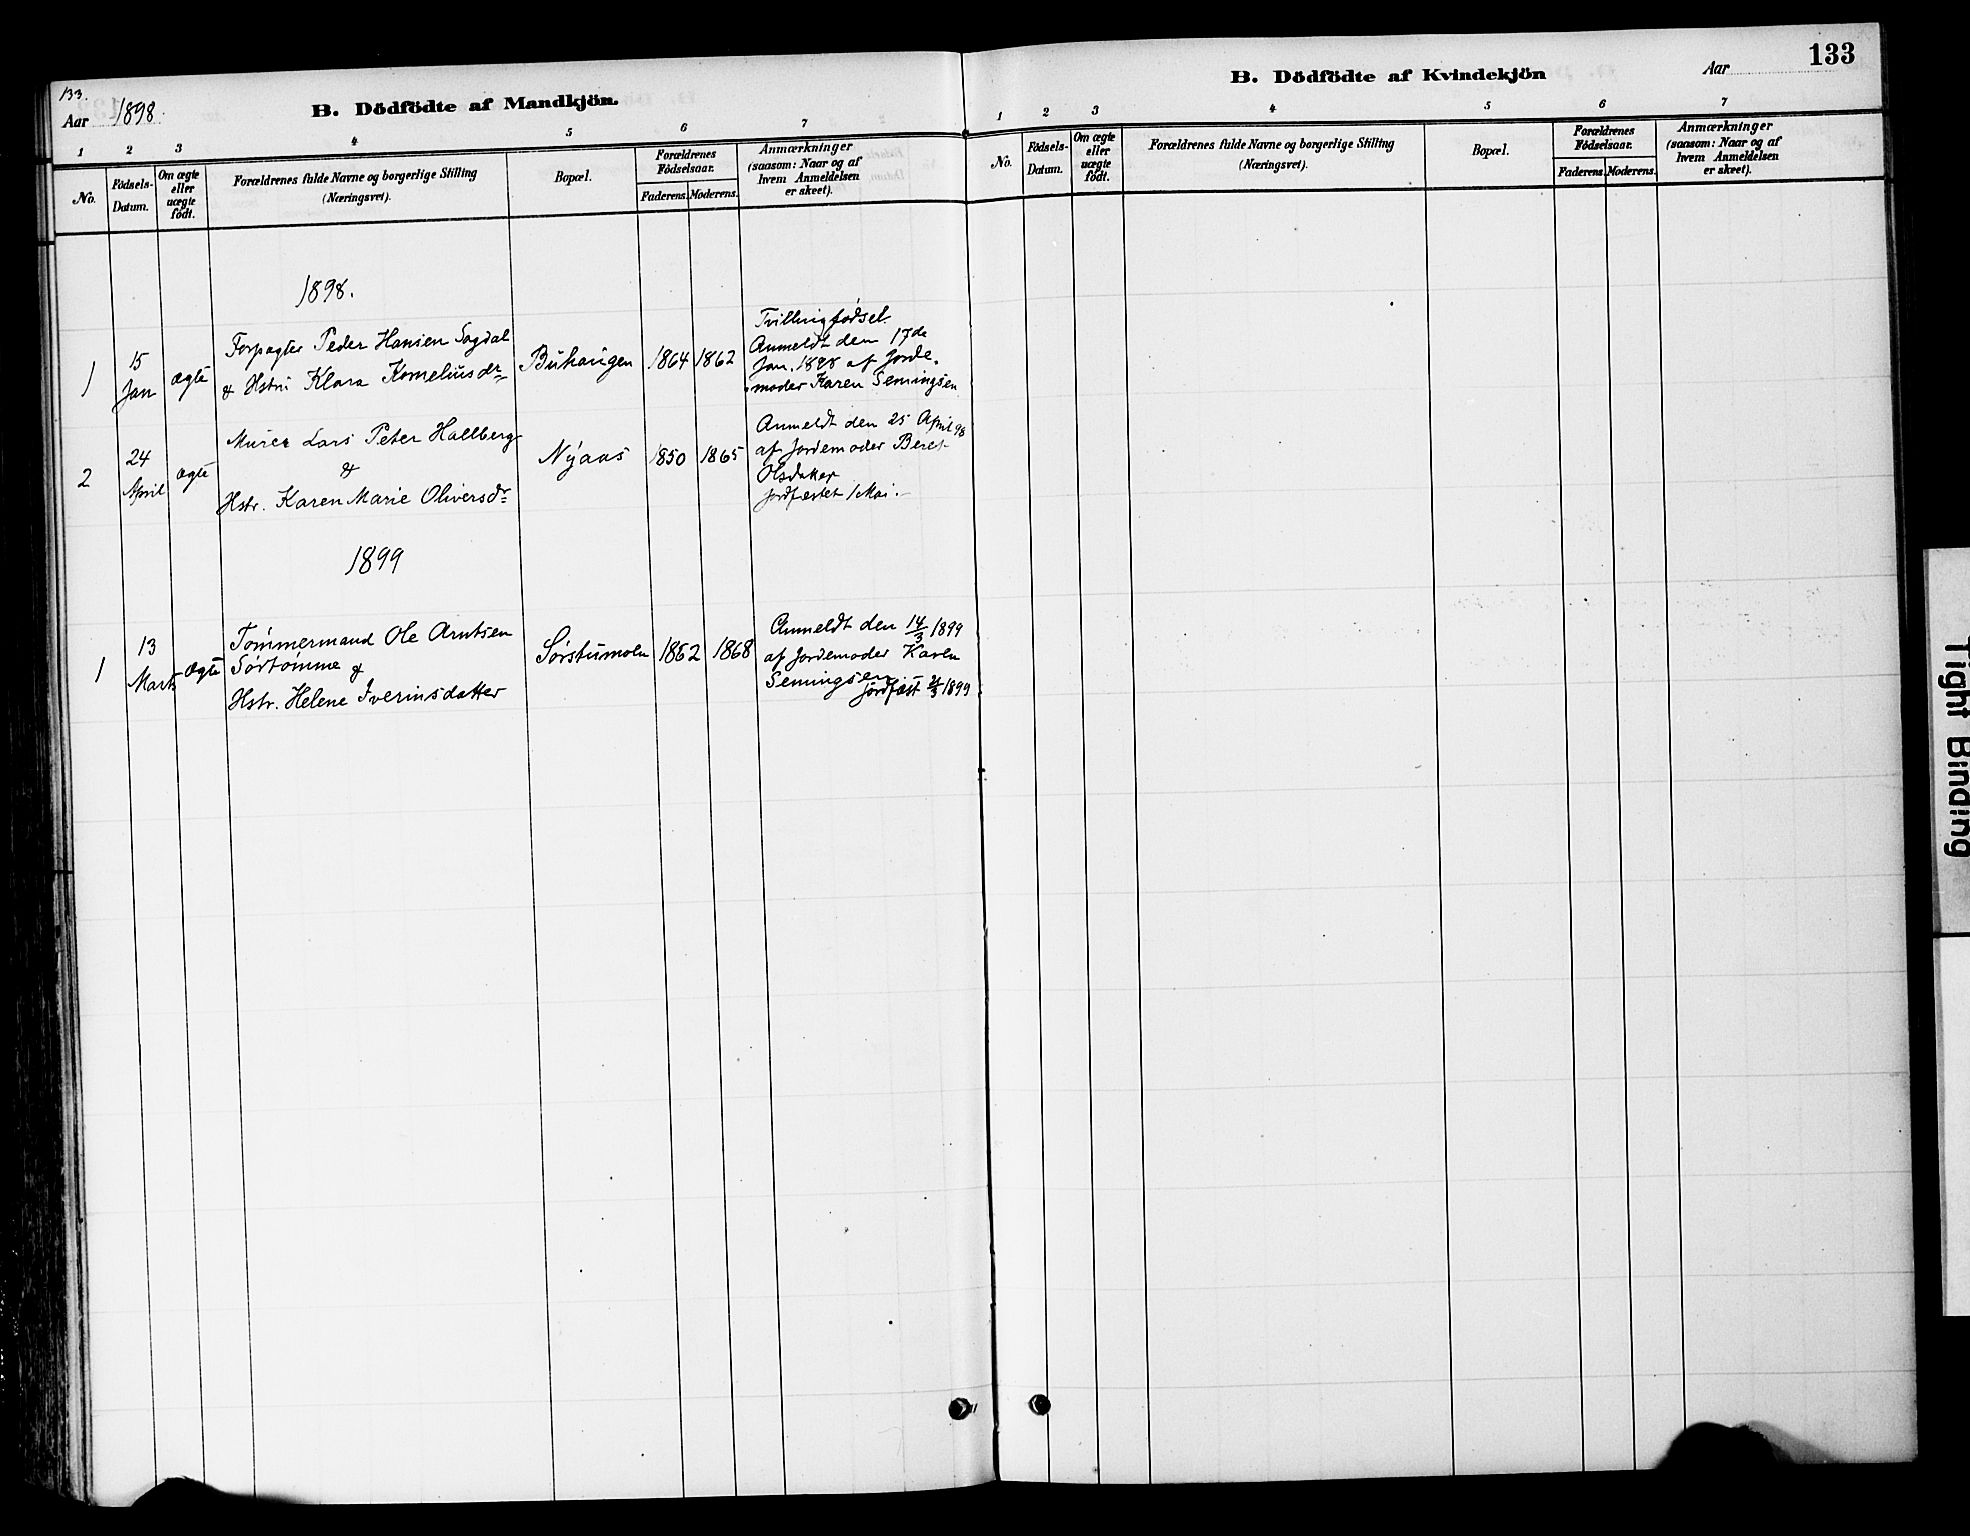 133.
Aar 1898.
B. Dödfödte af Mandkjön.
1 2 3 4 5 6 7
No.
Födsels-
Datum.
Om ægte
eller
uægte
födt.
Forældrenes fulde Navne og borgerlige Stilling
(Næringsvei).
Bopæl.
Forældrenes
Födselsaar.
Faderens. Moderens.
Anmærkninger
(saasom: Naar og af
hvem Anmeldelsen
er skeet).
1898.
1
15
Jan
ægte
Forpagter Peder Hansen Sogdal
& Hstru Klara Korneliusdr
Buhaugen
1864 1862
Tvillingfødsel.
Anmeldt den 17de
Jan. 1898 af Jorde-
moder Karen Semingsen
2
24
April
ægte
Murer Lars Peter Hallberg
&
Hstr. Karen Marie Oliversdr
Nyaas
1850 1865
Anmeldt den 25 April 98
af Jordemoder Beret
Olsdatter
Jordfæstet 1 Mai.
1899
1
13
Marts
ægte
Tømmermand Ole Arntsen
Sørtømme &
Hstr. Helene Iverinsdatter
Sørstumoen
1862 1868
Anmeldt den 14/3 1899
af Jordemoder Karen
Semingsen
Jordfæst /3 1899
133
B. Dödfödte af Kvindekjön
Aar
1 2 3 4 5 6 7
No.
Födsels-
Datum.
Om ægte
eller
uægte
födt.
Forældrenes fulde Navne og borgerlige Stilling
(Næringsvei).
Bopæl.
Forældrenes
Födselsaar.
Faderens. Moderens.
Anmærkninger
(saasom: Naar og af
hvem Anmeldelsen
er skeet).
Tight Binding